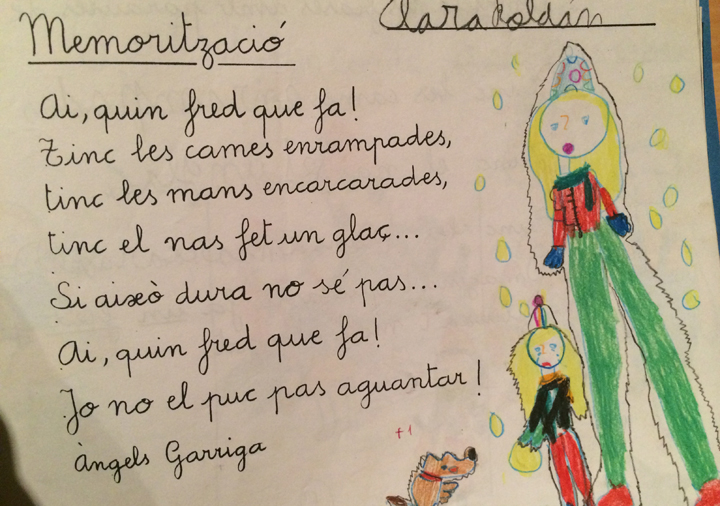 Clara Roldán
Memorització
Ai, quin fred que fa!
Tinc les cames enrampades,
tinc les mans encarcarades,
tinc el nas fet un glaç...
Si això dura no sé pas...
Ai, quin fred que fa!
Jo no el puc pas aguantar!
Àngels Garriga
+1